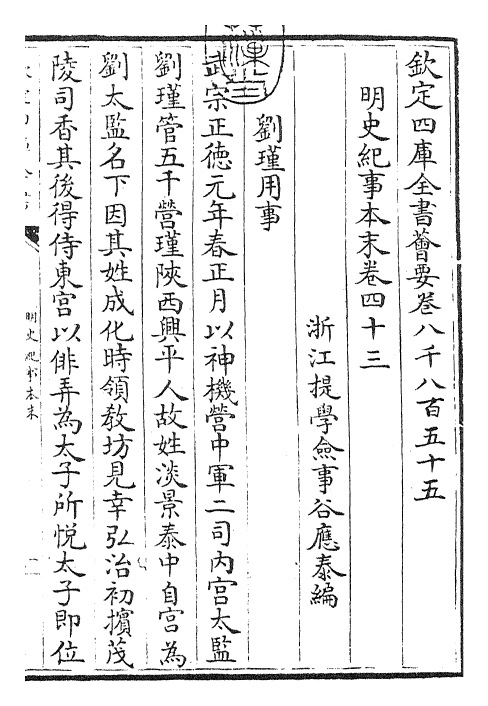 欽定四庫全書薈要卷八千八百五十五
明史紀事本末卷四十三
浙江提學僉事谷應泰編
劉瑾用事
武宗正德元年春正月以神機營中軍二司内官太監
劉瑾管五千營瑾陜西興平人故姓淡景泰中自宫為
劉太監名下因其姓成化時領教坊見幸弘治初擯茂
陵司香其後得侍東宫以俳弄為太子所悦太子即位
明史紀事本末